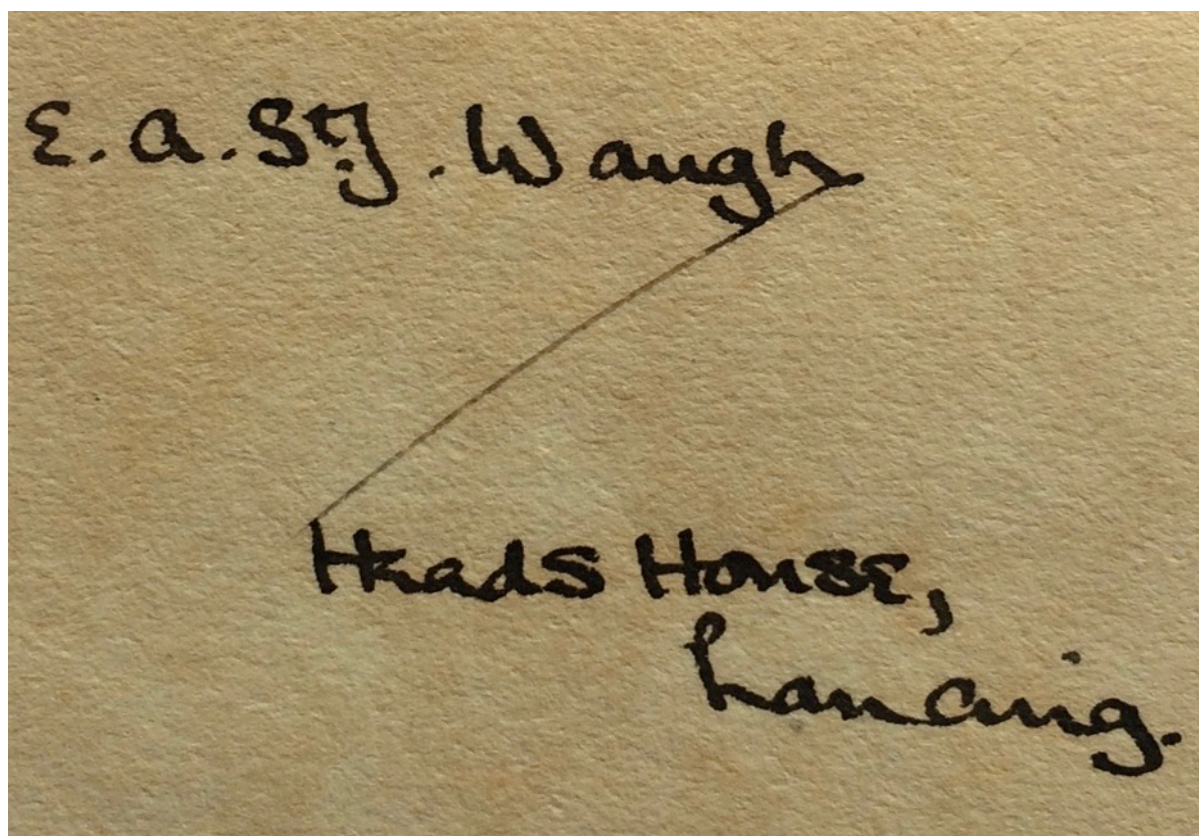 E. A. St. J. Waugh
Heads House,
Lancing.